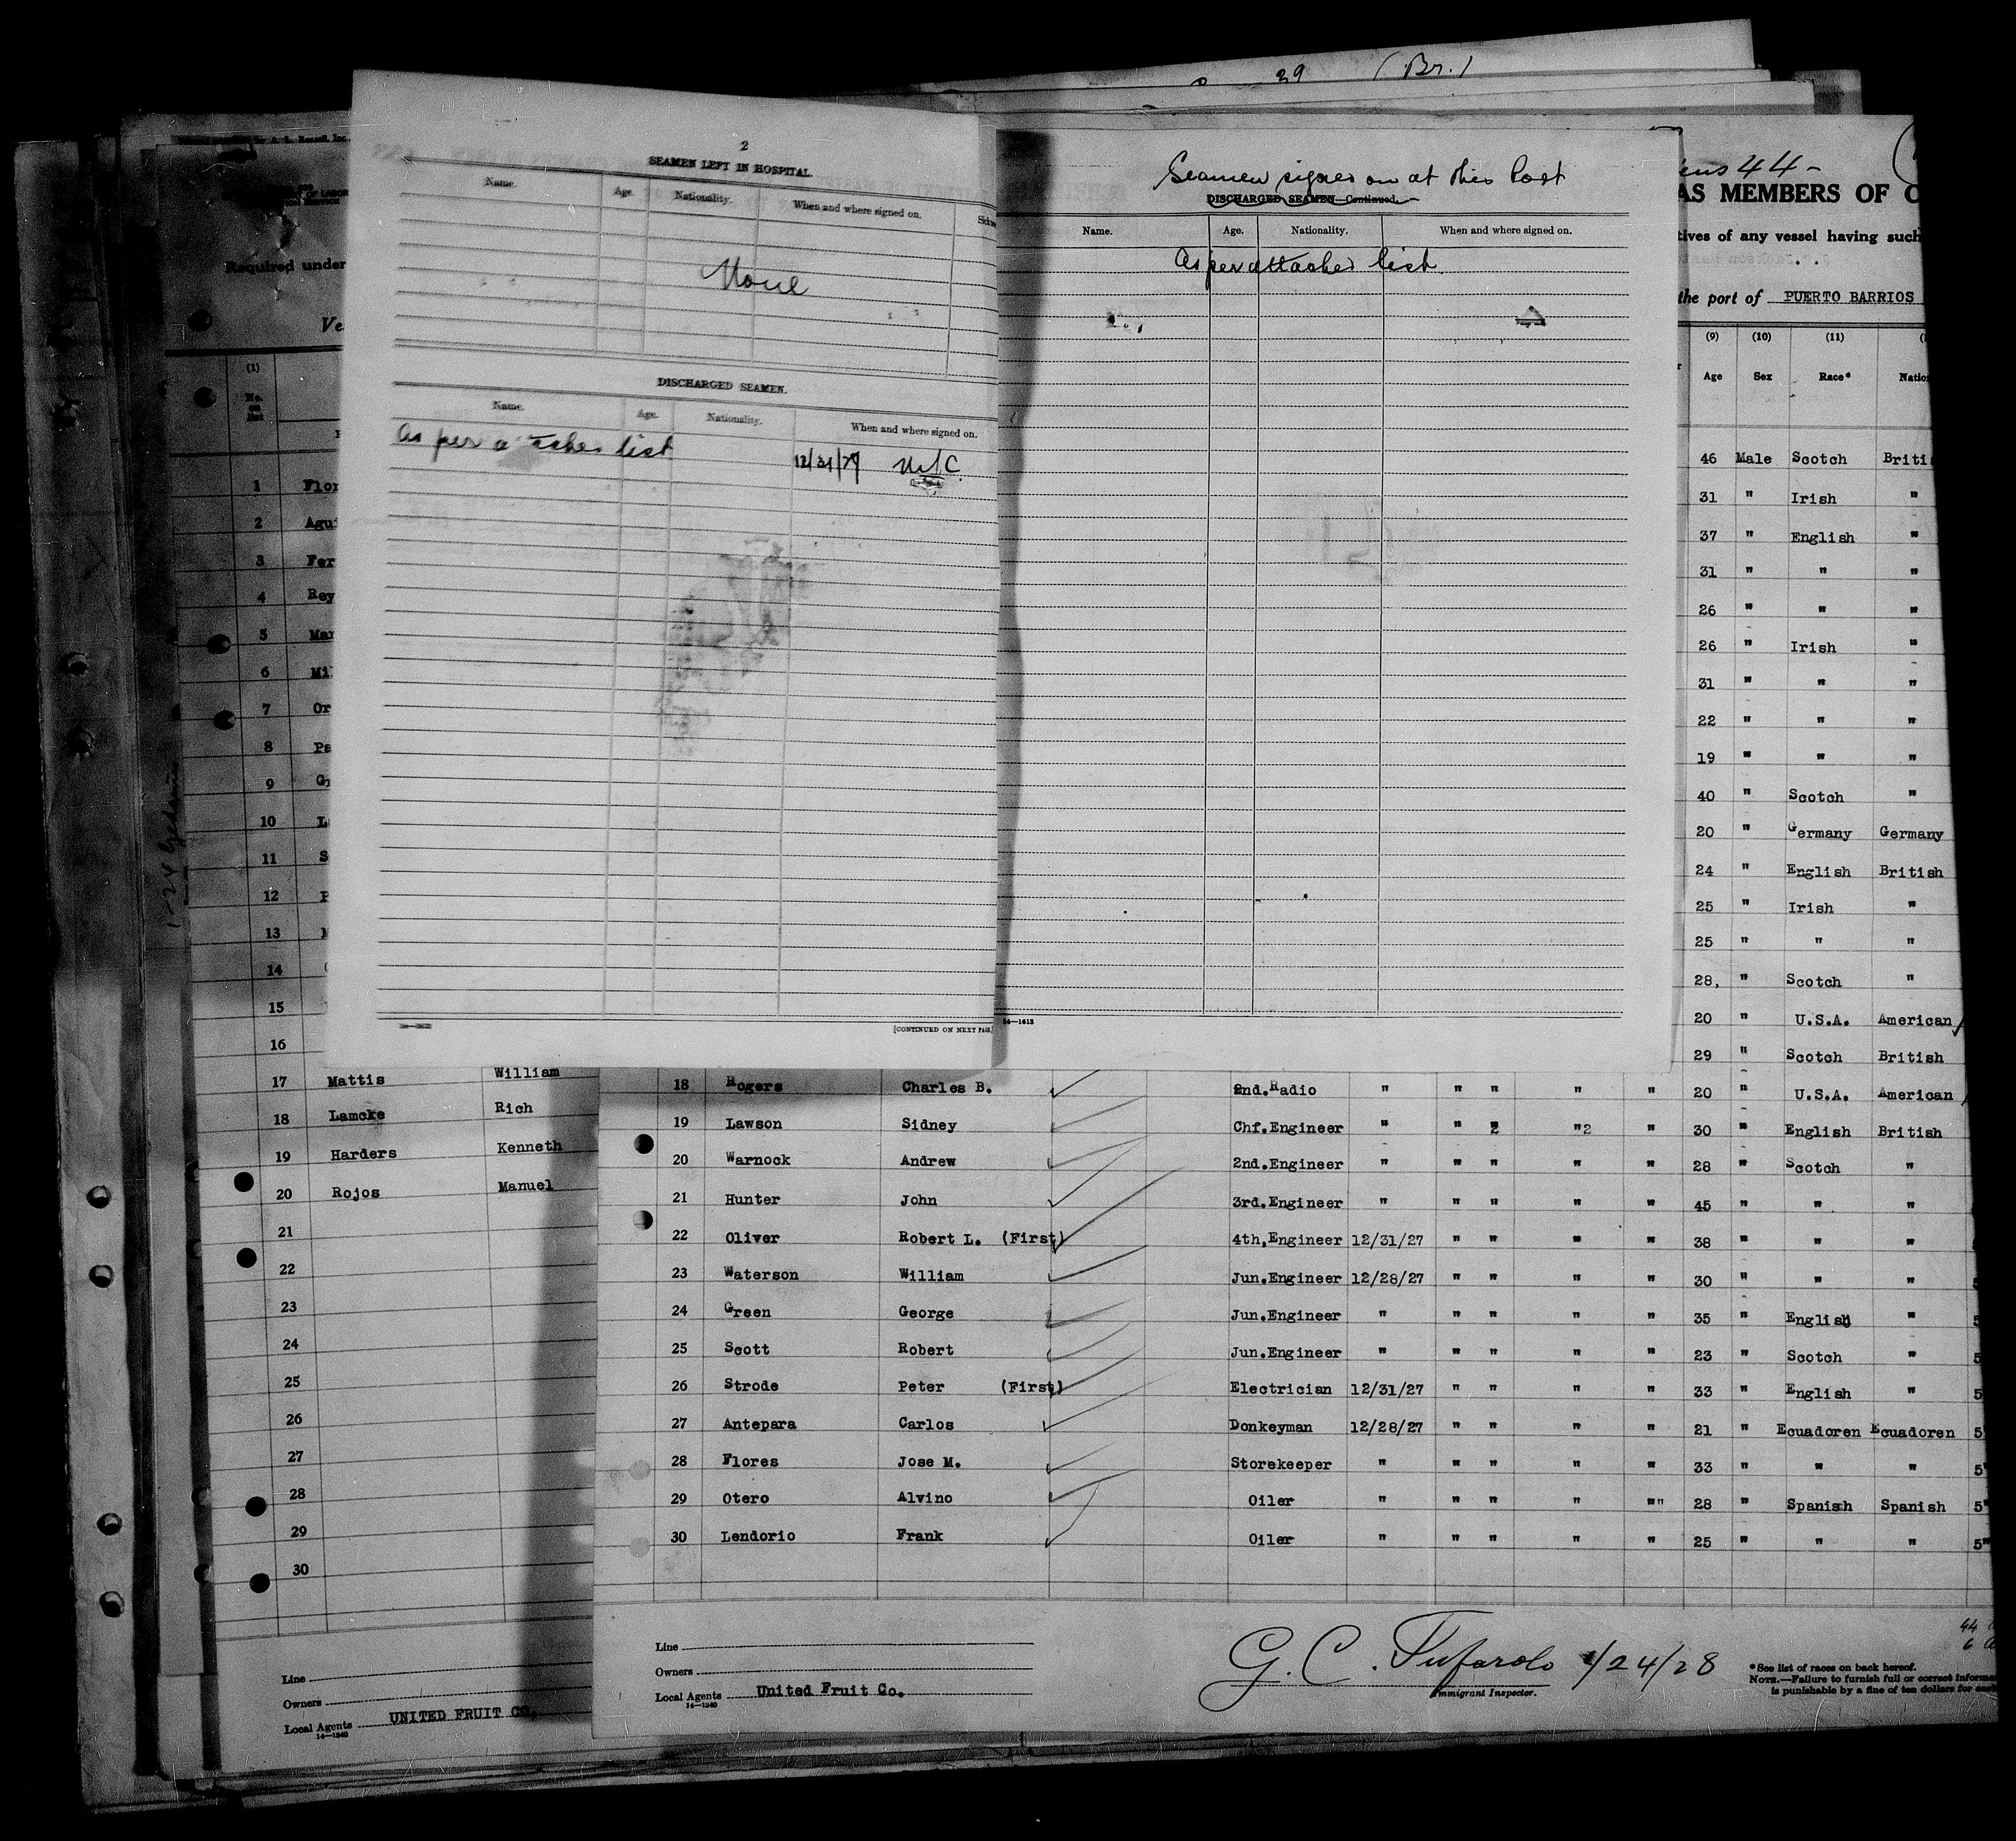 39 (Br.)
2
SEAMEN LEFT IN HOSPITAL.
Name. Age. Nationality. When and where signed on.
None
DISCHARGED SEAMEN.
Name. Age. Nationality. When and where signed on.
As per a tached list 12/31/27 N.Y.C.
[CONTINUED ON NEXT PAGE.]
Seamen signed on at this Port
DISCHARGED SEAMEN—Continued.
Name. Age. Nationality. When and where signed on.
As per attached list
14—1613
44-
AS MEMBERS OF C
tives of any vessel having such
the port of PUERTO BARRIOS
(9) (10) (11)
Age Sex Race* Natio
46 Male Scotch Briti
31 " Irish "
37 " English "
31 " " "
26 " " "
26 " Irish "
31 " " "
22 " " "
19 " " "
40 " Scotch "
20 " Germany Germany
24 " English British
25 " Irish "
25 " " "
28, " Scotch "
20 " U.S.A. American
29 " Scotch British
18 Rogers Charles B. 2nd.Radio " " " " " 20 " U.S.A. American
19 Lawson Sidney Chf.Engineer " " 2 "2 " 30 " English British
20 Warnock Andrew 2nd.Engineer " " " " " 28 " Scotch "
21 Hunter John 3rd.Engineer " " " " " 45 " " "
22 Oliver Robert L. (First) 4th,Engineer 12/31/27 " " " " 38 " " "
23 Waterson William Jun.Engineer 12/28/27 " " " " 30 " " "
24 Green George Jun.Engineer " " " " " 35 " English "
25 Scott Robert Jun.Engineer " " " " " 23 " Scotch "
26 Strode Peter (First) Electrician 12/31/27 " " " " 33 " English "
27 Antepara Carlos Donkeyman 12/28/27 " " " " 21 " Ecuadoren Ecuadoren 5
28 Flores Jose M. Storekeeper " " " " " 33 " " " 5"
29 Otero Alvino Oiler " " " " "" 28 " Spanish Spanish 5"
30 Lendorio Frank Oiler " " " " " 25 " " " 5"
Line
Owners
Local Agents United Fruit Co.
14—1240
G. C. Tufarolo 1/24/28
Immigrant Inspector.
44
6
*See list of races on back hereof.
NOTE.—Failure to furnish full or correct informa
is punishable by a fine of ten dollars for each
Required under
Ve
(1)
No. on list
1 Flor
2 Agui
3 Fer
4 Rey
5 Mar
6 Mi
7 Or
8 Pa
9 G
10 L
11 S
12
13
14
15
16
17 Mattis William
18 Lamcke Rich
19 Harders Kenneth
20 Rojos Manuel
21
22
23
24
25
26
27
28
29
30
Line
Owners
Local Agents UNITED FRUIT CO.
14—1240